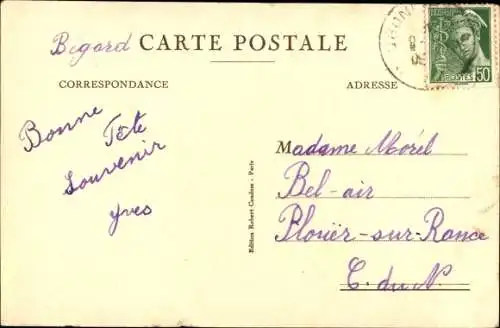 Begard
CARTE POSTALE
CORRESPONDANCE
ADRESSE
50
POSTES
Bonne
Fête
Souvenir
Yves
Madame Morel
Bel-air
Plouër-sur-Rance
C. du N.
Edition Robert Gendron - Paris